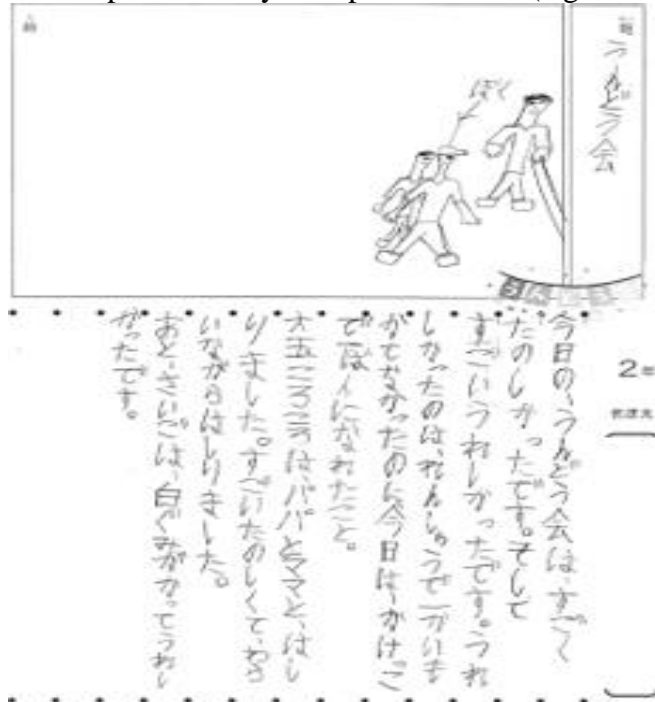 うんどう会
ぼく
2年
今日の、うんどう会は、すごく
たのしかったです。そして
すごいうれしかったです。うれ
しかったのは、れんしゅうで一かいも
かてなかったのに、今日は、かけっこ
で一ばんになれたこと。
大玉ころころは、パパとママと、はし
りました。すごいたのしくて、わら
いながらはしりました。
あと、さいごは、白ぐみがかってうれし
かったです。